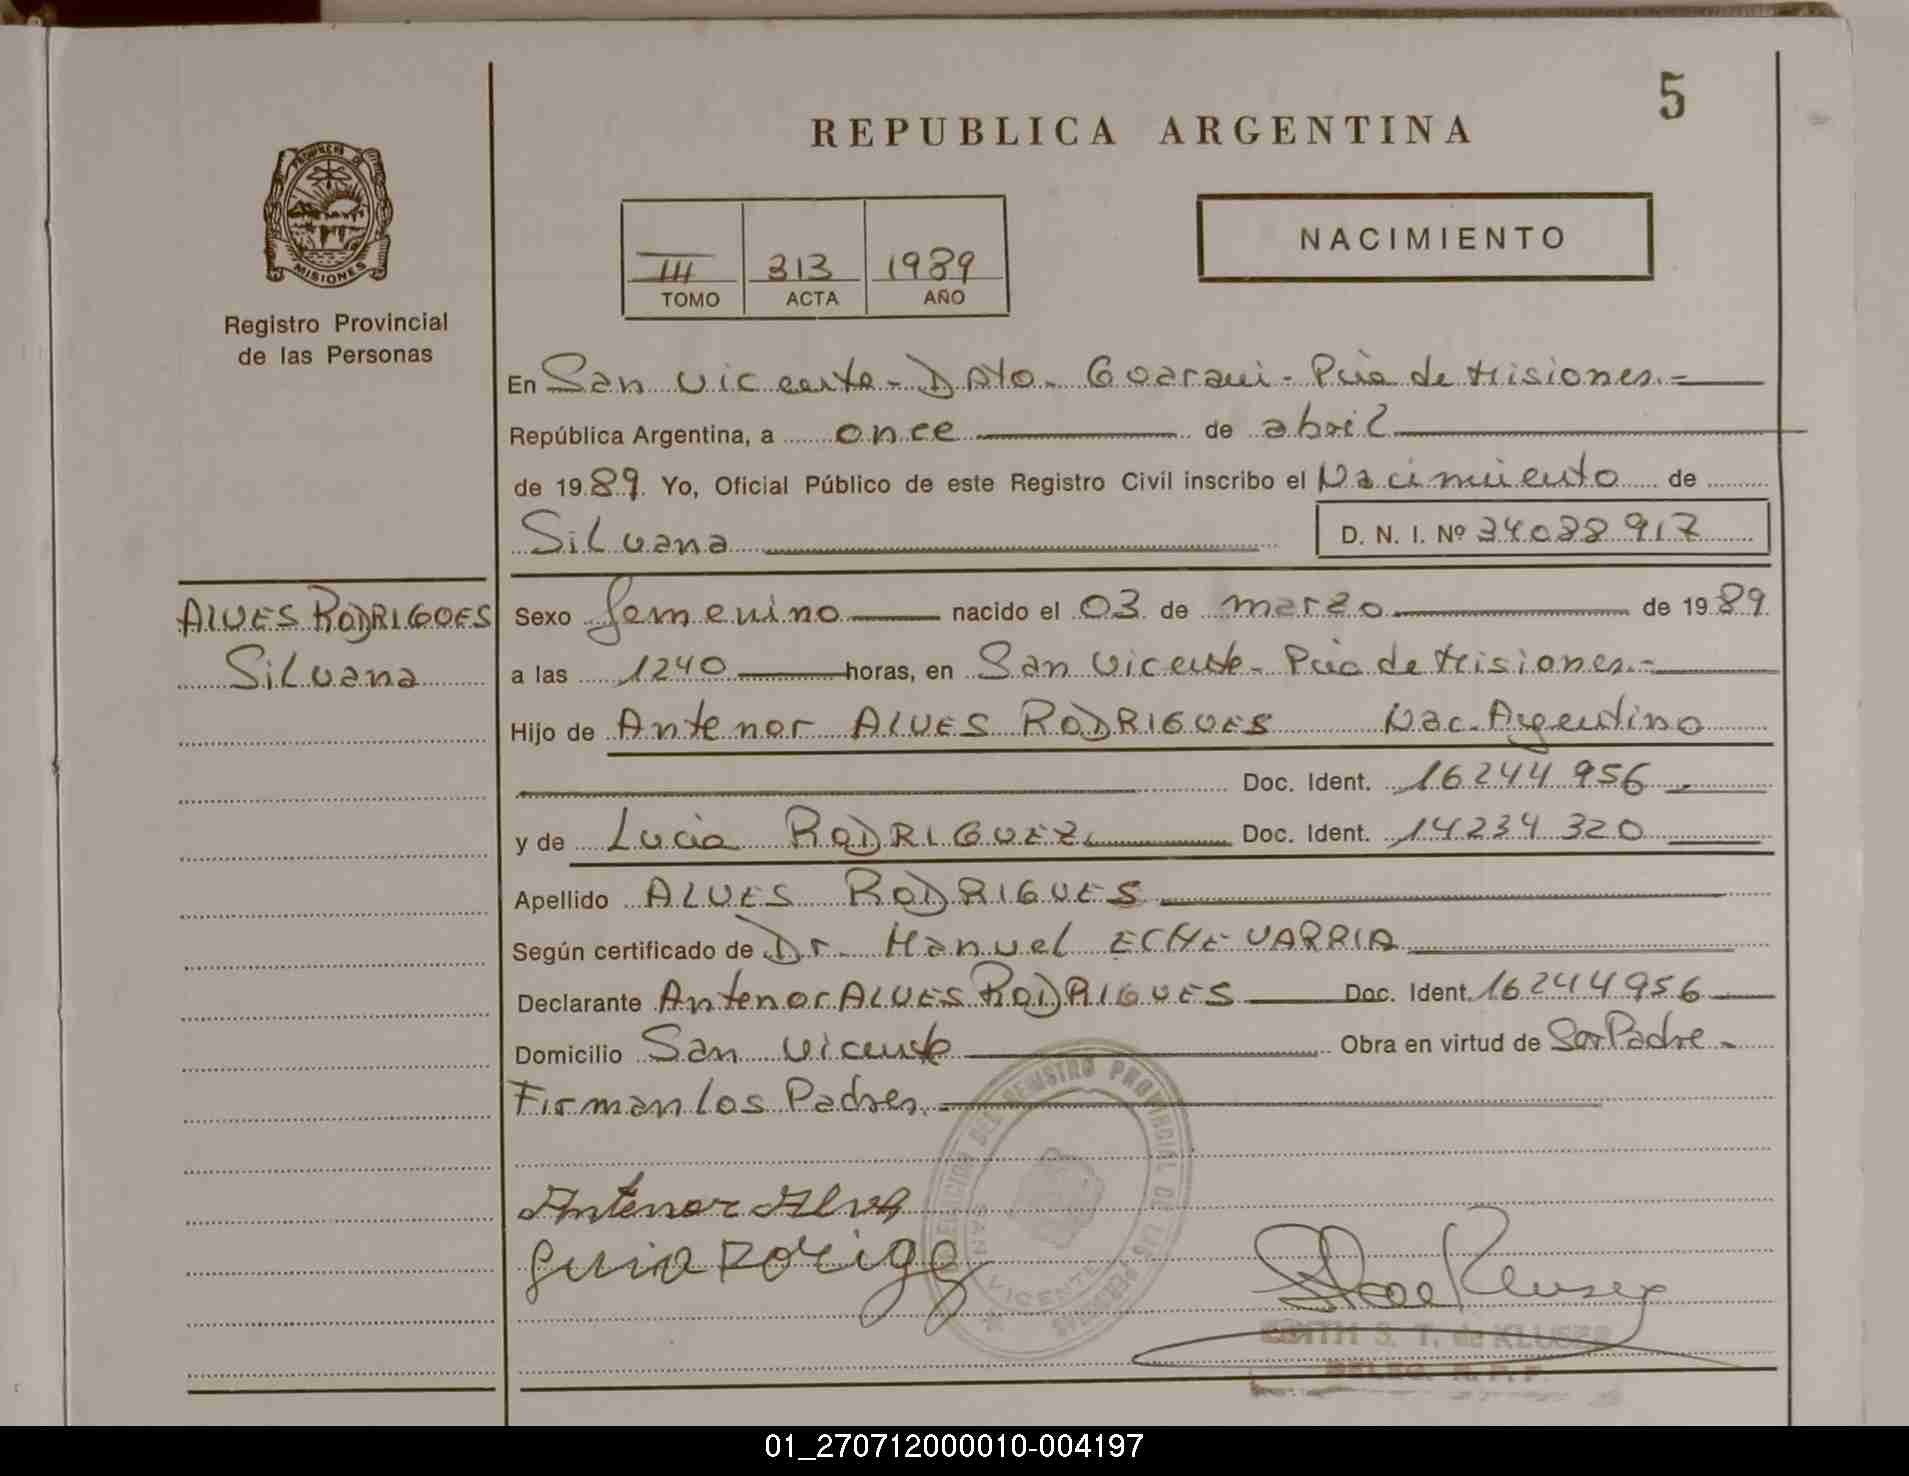 5
REPUBLICA ARGENTINA
PROVINCIA DE
MISIONES
Registro Provincial
de las Personas
III 313 1989
TOMO ACTA AÑO
NACIMIENTO
En San Vicente - Dpto. Guarani - Pcia de Misiones.-
República Argentina, a once de abril
de 1989. Yo, Oficial Público de este Registro Civil inscribo el Nacimiento de
Silvana D. N. I. Nº 34088917
ALVES RODRIGUES
Silvana
Sexo femenino nacido el 03 de marzo de 1989
a las 1240 horas, en San Vicente - Pcia de Misiones.-
Hijo de Antenor ALVES RODRIGUES Nac. Argentino
Doc. Ident. 16244956
y de Lucia RODRIGUEZ Doc. Ident. 14234320
Apellido ALVES RODRIGUES
Según certificado de Dr. Manuel ECHEVARRIA
Declarante Antenor ALVES RODRIGUES Doc. Ident. 16244956
Domicilio San Vicente Obra en virtud de Ser Padre -
Firman los Padres.-
DELEGACION DEL REGISTRO PROVINCIAL DE LAS PERSONAS
SAN VICENTE
Antenor Alves
EDITH S. T. de KLUSER
DELEG. R. P. P.
01_270712000010-004197